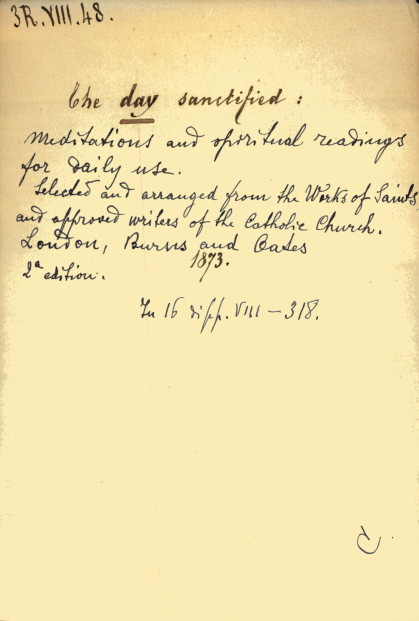 3R.VIII.48.
The day sanctified:
Meditations and spiritual readings
for daily use.
Selected and arranged from the Works of Saints
and approved writers of the Catholic Church.
London, Burns and Oates
1873.
2ª edition.
In 16 di pp. VIII – 318.